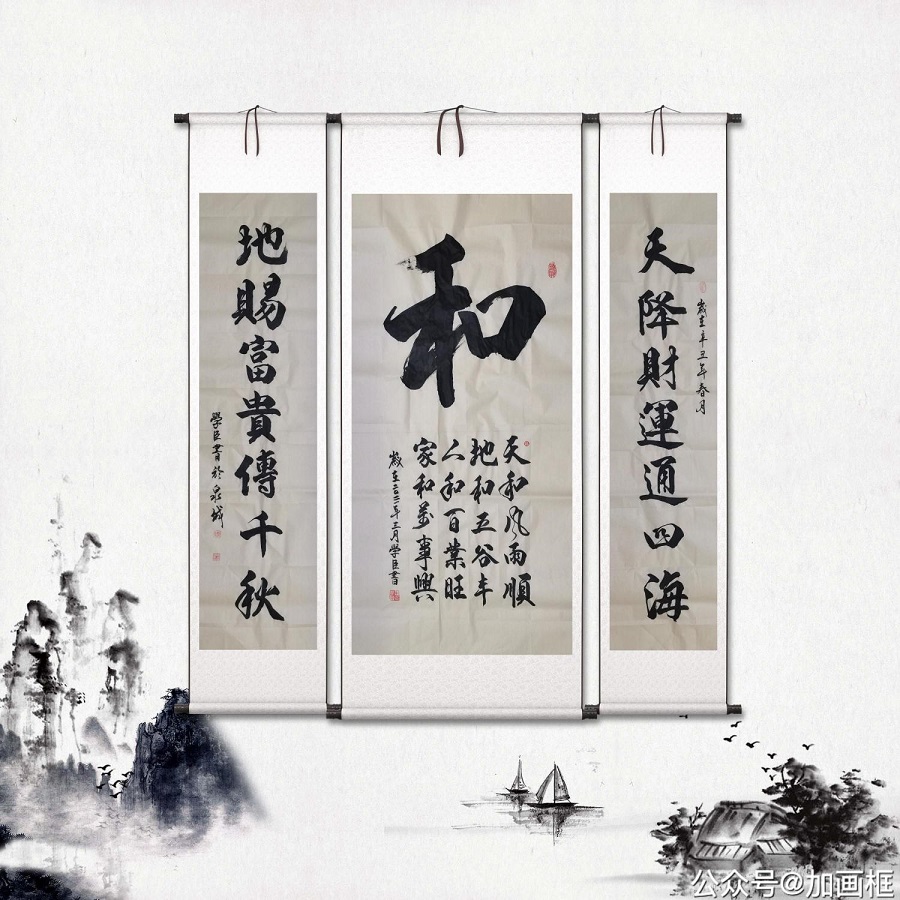 天降財運通四海
歲在辛丑年春月
和
天和风雨順
地和五谷丰
人和百業旺
家和萬事興
歲在二〇二一年三月學臣書
地賜富貴傳千秋
學臣書於泉城
公众号@加画框